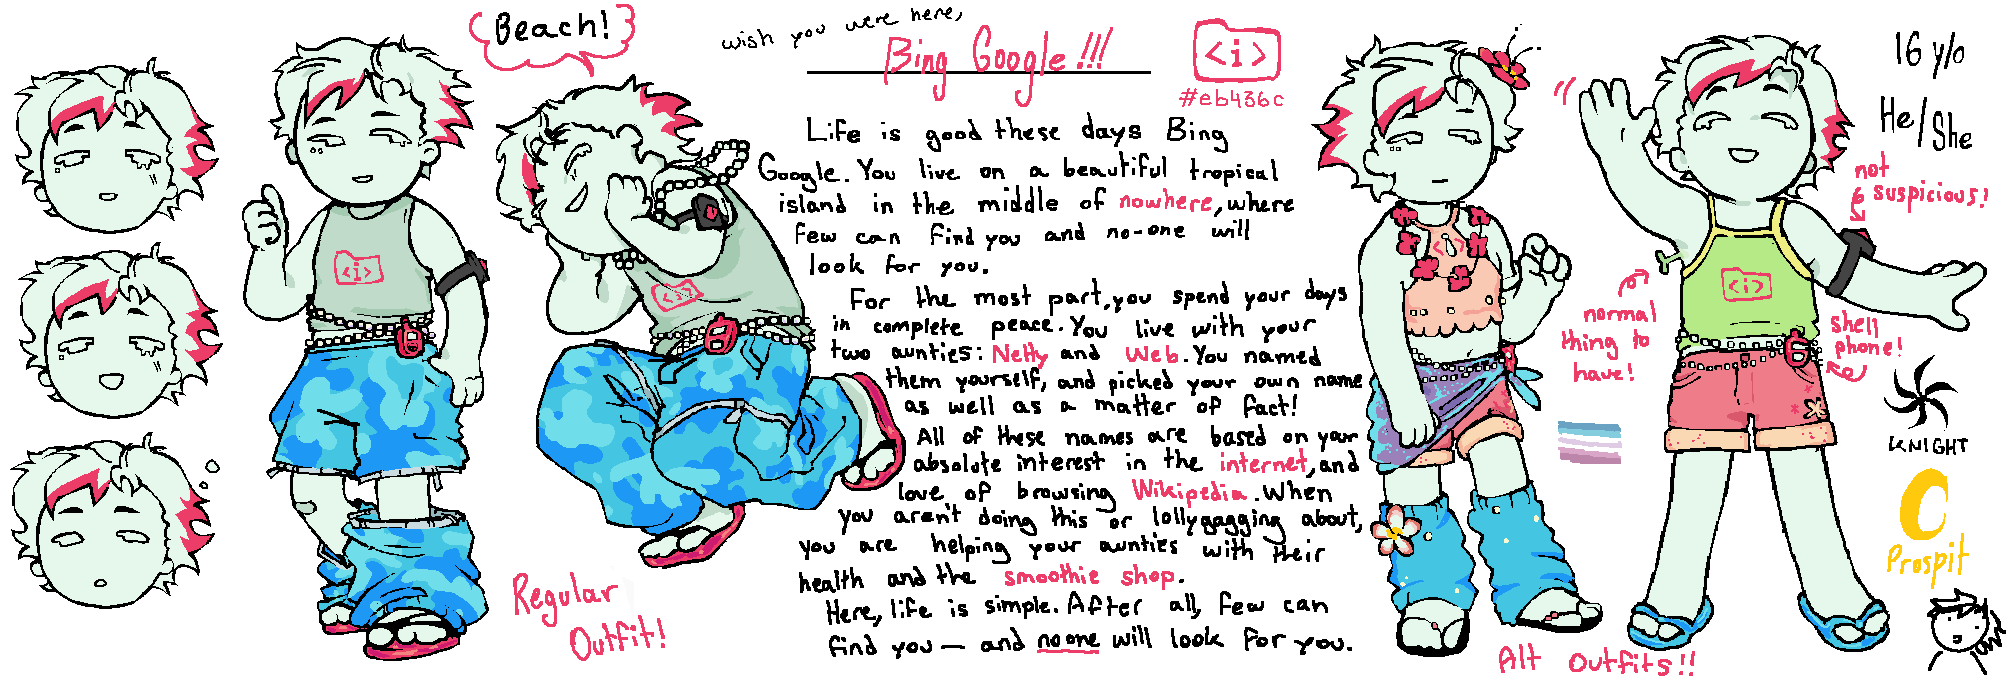 Beach!
wish you were here,
Bing Google!!!
<i>
#eb436c
Life is good these days Bing
Google. You live on a beautiful tropical
island in the middle of nowhere, where
few can find you and no-one will
look for you.
For the most part, you spend your days
in complete peace. You live with your
two aunties: Netty and Web. You named
them yourself, and picked your own name
as well as a matter of fact!
All of these names are based on your
absolute interest in the internet, and
love of browsing Wikipedia. When
you aren't doing this or lollygagging about,
you are helping your aunties with their
health and the smoothie shop.
Here, life is simple. After all, few can
find you — and no one will look for you.
Regular
Outfit!
<i>
<i>
<i>
<i>
Alt Outfits!!
16 y/o
He/She
not
suspicious!
normal
thing to
have!
shell
phone!
KNIGHT
Prospit